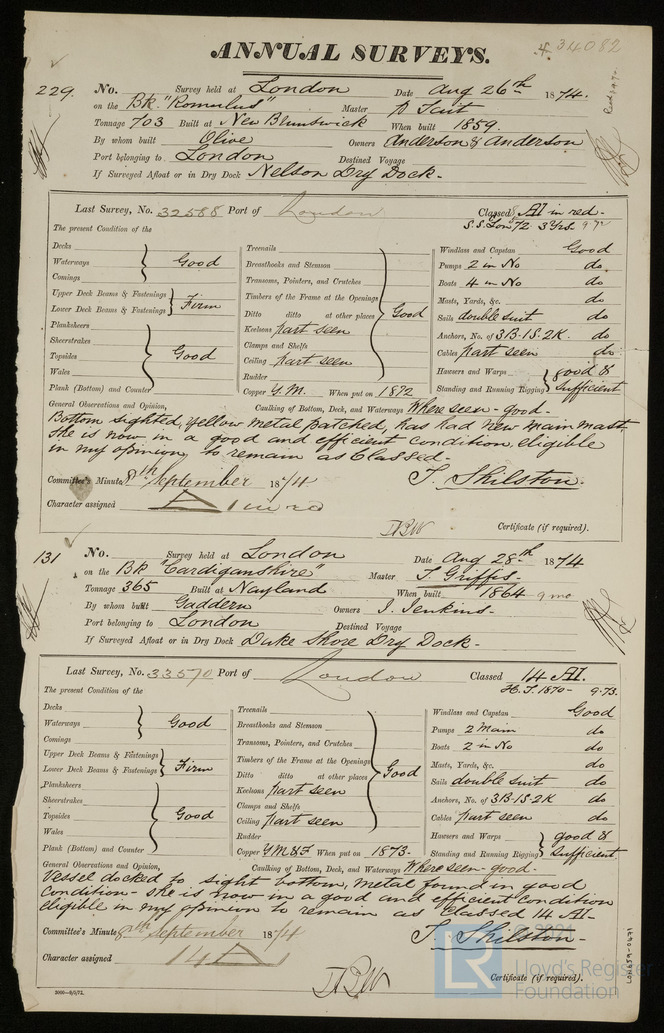 ANNUAL SURVEYS.
34082
229. No. Survey held at London Date Aug 26th 1874.
on the Bk. "Romulus" Master D Tait
Tonnage 703 Built at New Brunswick When built 1859.
By whom built Olive Owners Anderson & Anderson
Port belonging to London Destined Voyage
If Surveyed Afloat or in Dry Dock Nelson Dry Dock.
Last Survey, No. 32588 Port of London Classed A1 in red.
S.S. Lon 72 3 Yrs 9 72
The present Condition of the
Decks
Waterways Good
Comings
Upper Deck Beams & Fastenings
Lower Deck Beams & Fastenings Firm
Planksheers
Sheerstrakes
Topsides Good
Wales
Plank (Bottom) and Counter
Treenails
Breasthooks and Stemson
Transoms, Pointers, and Crutches
Timbers of the Frame at the Openings
Ditto ditto at other places Good
Keelsons part seen
Clamps and Shelfs
Ceiling part seen
Rudder
Copper Y.M. When put on 1872
Windlass and Capstan Good
Pumps 2 in No do.
Boats 4 in No do.
Masts, Yards, &c. do
Sails double suit do
Anchors, No. of 3B.1S.2K. do
Cables part seen do.
Hawsers and Warps good &
Standing and Running Rigging sufficient
General Observations and Opinion, Caulking of Bottom, Deck, and Waterways Where seen - good.
Bottom sighted, yellow metal patched, has had new main mast.
She is now in a good and efficient condition, eligible
in my opinion to remain as Classed.
Committee's Minute 8th September 1874 T. Skilston.
Character assigned A 1 in red
Certificate (if required).
131 No. Survey held at London Date Aug 28th 1874
on the Bk "Cardiganshire" Master T. Griffis.
Tonnage 365 Built at Nayland When built 1864 9 mo
By whom built Gaddern Owners J. Jenkins.
Port belonging to London Destined Voyage
If Surveyed Afloat or in Dry Dock Duke Shore Dry Dock.
Last Survey, No. 33570 Port of London Classed 14 A1.
H.T. 1870 - 9.73.
The present Condition of the
Decks
Waterways Good
Comings
Upper Deck Beams & Fastenings
Lower Deck Beams & Fastenings Firm
Planksheers
Sheerstrakes
Topsides Good
Wales
Plank (Bottom) and Counter
Treenails
Breasthooks and Stemson
Transoms, Pointers, and Crutches
Timbers of the Frame at the Openings
Ditto ditto at other places Good
Keelsons part seen
Clamps and Shelfs
Ceiling part seen
Rudder
Copper YM&F When put on 1873.
Windlass and Capstan Good
Pumps 2 Main do
Boats 2 in No do
Masts, Yards, &c. do
Sails double suit do
Anchors, No. of 3B.1S.2K do
Cables part seen do
Hawsers and Warps good &
Standing and Running Rigging sufficient
General Observations and Opinion, Caulking of Bottom, Deck, and Waterways Where seen - good.
Vessel docked to sight bottom, metal found in good
Condition - she is now in a good and efficient Condition
eligible in my opinion to remain as Classed 14 A1 -
Committee's Minute 8th September 1874 T. Skilston.
Character assigned 14 A
Certificate (if required).
2000—8/5/72.
LR
© 2021
Lloyd's Register
Foundation
LON659-0671